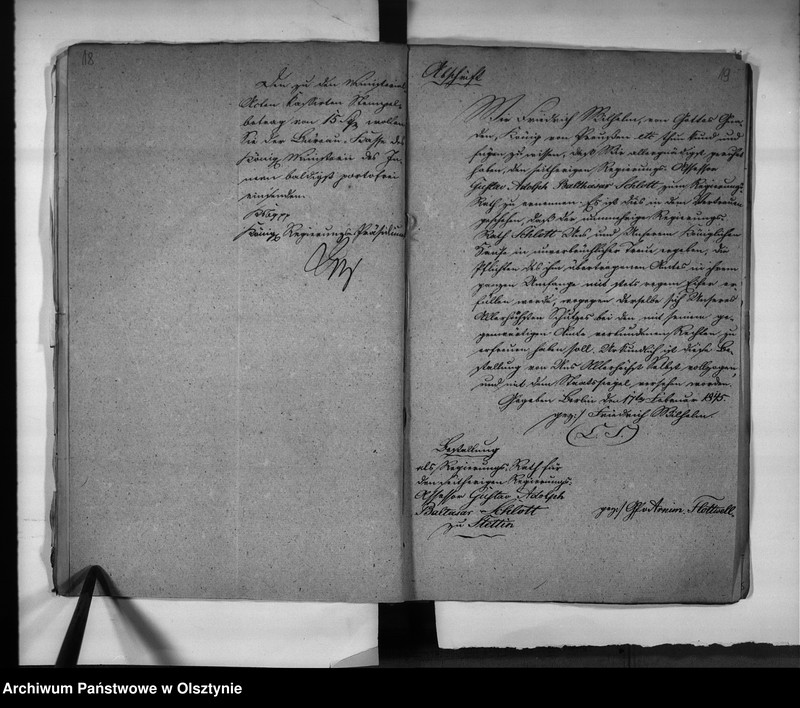 18
Den zu den Ministerial-
Acten kassirten Stempel-
betrag von 15 Sg wollen
Sie der Büreau-Kasse des
Königl. Ministerii des In-
nern baldigst portofrei
einsenden.
Königl. Regierungs-Präsidium
19
Abschrift
Wir Friedrich Wilhelm, von Gottes Gna-
den, König von Preußen etc. thun kund und
fügen zu wissen, daß Wir allergnädigst geruht
haben, den seitherigen Regierungs-Assessor
Gustav Adolph Balthasar Schlott zum Regierungs-
Rath zu ernennen. Es ist dies in dem Vertrauen
geschehen, daß der nunmehrige Regierungs-
Rath Schlott Uns und Unserem Königlichen
Hause in unverbrüchlicher Treue ergeben, die
Pflichten des ihm übertragenen Amtes in ihrem
ganzen Umfange mit stets regem Eifer er-
füllen werde, wogegen derselbe sich Unseres
Allerhöchsten Schutzes bei den mit seinem ge-
genwärtigen Amte verbundenen Rechten zu
erfreuen haben soll. Urkundlich ist diese Be-
stallung von Uns Allerhöchst Selbst vollzogen,
und mit dem Staatssiegel versehen worden.
Gegeben Berlin den 17ten Februar 1845.
gez:/ Friedrich Wilhelm.
(L. S.)
Bestallung
als Regierungs-Rath für
den seitherigen Regierungs-
Assessor Gustav Adolph
Balthasar Schlott
zu Stettin
gez:/ Gf. v Arnim. Flottwell.
Archiwum Państwowe w Olsztynie